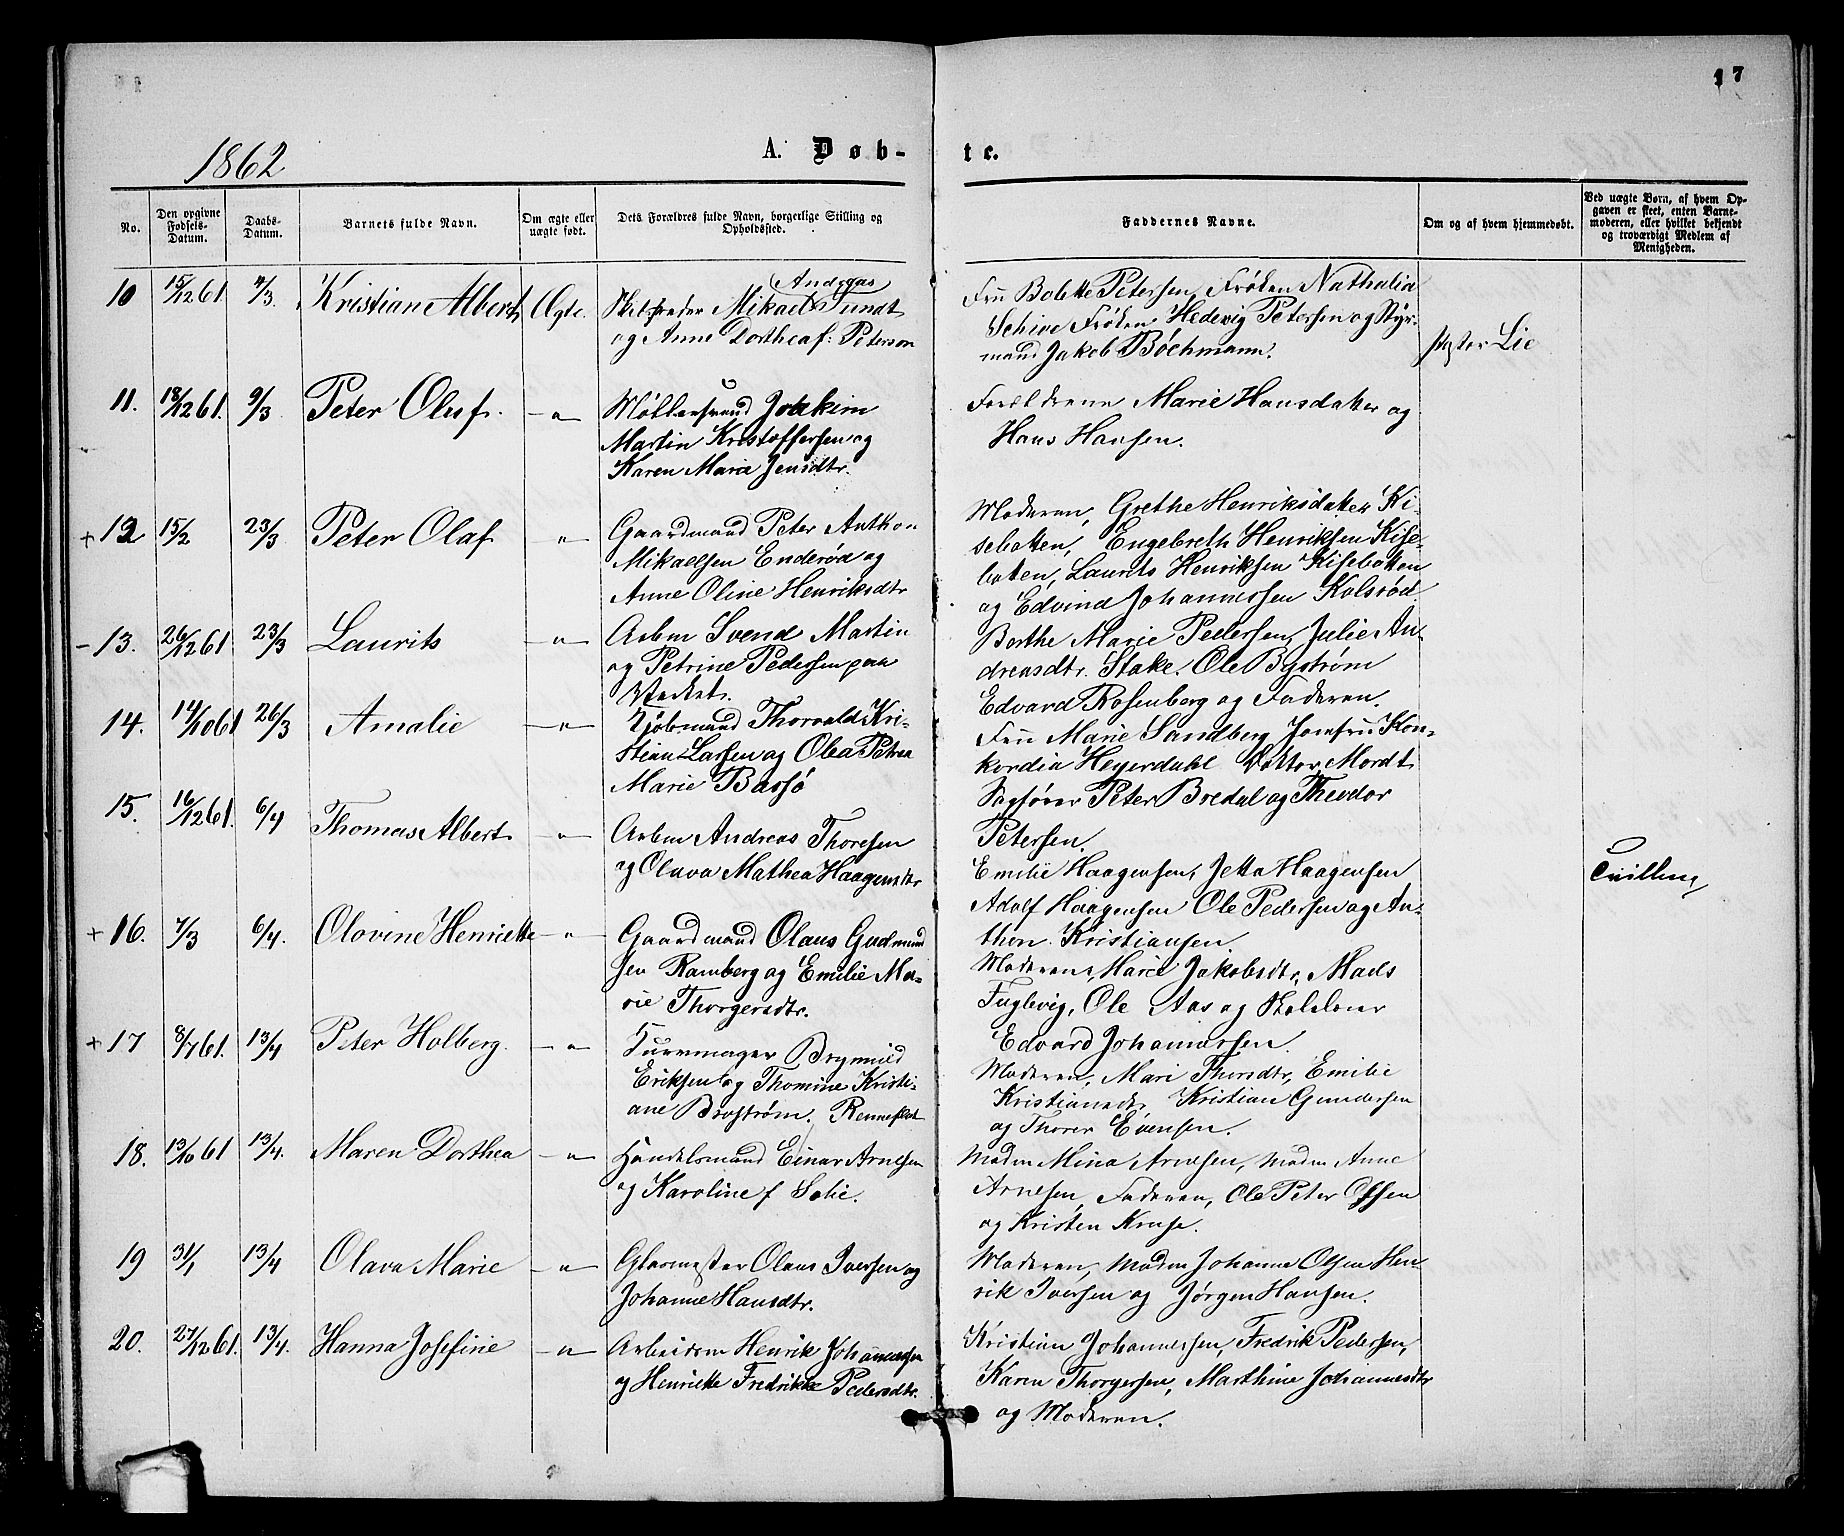 17
1862
A. Døb-
te.
No.
Den opgivne Fødsels-Datum.
Daabs-Datum.
Barnets fulde Navn.
Om ægte eller uægte født.
Dets Forældres fulde Navn, borgerlige Stilling og Opholdssted.
Faddernes Navne.
Om og af hvem hjemmedøbt.
Ved uægte Børn, af hvem Opgaven er skeet, enten Barnemoderen, eller hvilket bekjendt og troværdigt Medlem af Menigheden.
10 15/12 61 4/3. Kristian Albert Ægte.
Andreas
Mikael Tundt
og Anne Dorthea f: Peterson
Fru Bolette Petersen, Frøken Nathalia
Schive Frøken Hedevig Petersen og Styr-
mand Jakob Bøchmann.
Pastor Lie
11. 18/12 61. 9/3 Peter Oluf. -"-
Joakim
Martin Kristoffersen og
Karen Marie Jensdtr.
Forældrene Marie Hansdatter og
Hans Hansen.
+ 12 15/2 23/3 Peter Olaf "
Gaardmand Peter Anthon
Mikaelsen Enderød og
Anne Oline Henriksdtr
Moderen, Grethe Henriksdatter Ki-
sebotten, Engebreth Henriksen Kise-
botten, Laurits Henriksen Kisebotten
og Edvind Johannessen Kolsrød
- 13. 26/12 61 23/3 Laurits -"-
Arbm Svend Martin
og Petrine Pedersen paa
Værket.
Berthe Marie Pedersen, Julie An-
dreasdtr. Stake. Ole Bystrøm
Edvard Rosenberg og Faderen.
14. 14/10 61 26/3 Amalie -"-
Kjøbmand Thorvald Kri-
stian Larsen og Olea Petrea
Marie Bassø
Fru Marie Sandberg Jomfru Kon-
kordia Heyerdahl Doktor Mordt
Sagfører Peter Bredal og Theodor
Petersen.
15. 16/12 61. 6/4 Thomas Albert -"-
Arbm Andreas Thoresen
og Olava Mathea Haagensdtr
Emilie Haagensen, Jetta Haagensen
Adolf Haagensen Ole Pedersen og An-
thon Kristiansen.
Tvilling
+ 16. 7/3 6/4. Olavine Henriette -"-
Gaardmand Olaus Gudmund
sen Ramberg og Emilie Ma-
rie Thorgersdtr.
Moderen, Marie Jakobsdtr, Mads
Fuglevig, Ole Aas og Skolelærer
Edvard Johannessen.
+ 17 8/7 61. 13/4 Peter Holberg. -"-
Brynnild
Eriksen og Thomine Kristi-
ane Brostrøm.
Moderen, Mari Thorsdtr, Emilie
Kristiansdt, Kristian Gundersen
og Thorer Evensen.
18. 13/10 61 13/4. Maren Dorthea -"-
Handelsmand Einar Arnesen
og Karoline f Solie.
Madm Mina Arnesen, Madm Anne
Arnesen, Faderen, Ole Peter Olsen
og Kristen Kruse.
19 31/1 13/4 Olava Marie -"-
Glasmester Olaus Iversen og
Johanne Hansdtr.
Moderen, Madm Johanne Olsen Hen-
rik Iversen og Jørgen Hansen.
20. 27/12 61. 13/4. Hanna Josefine -"-
Arbeidsm Henrik Johannesen
og Henriette Fredrikke Pedersdtr.
Kristian Johannessen, Fredrik Pedersen,
Karen Thorgersen, Marthine Johannesdtr
og Moderen.